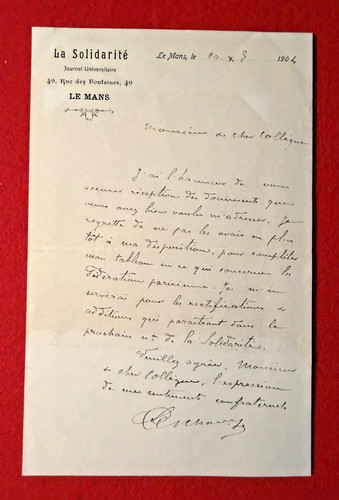 La Solidarité
Journal Universitaire
49, Rue des Fontaines, 49
LE MANS
Le Mans, le 1904
Monsieur & cher Collègue
J'ai l'honneur de vous
accuser réception des documents que
vous avez bien voulu m'adresser. Je
regrette de ne pas les avoir eu plus
tôt à ma disposition, pour compléter
mon tableau en ce qui concerne les
fédération parisienne. Je m'en
servirai pour les rectifications &
additions qui paraîtront dans le
prochain nº de la Solidarité.
Veuillez agréer, Monsieur
& cher Collègue, l'expression
de mes sentiments confraternels